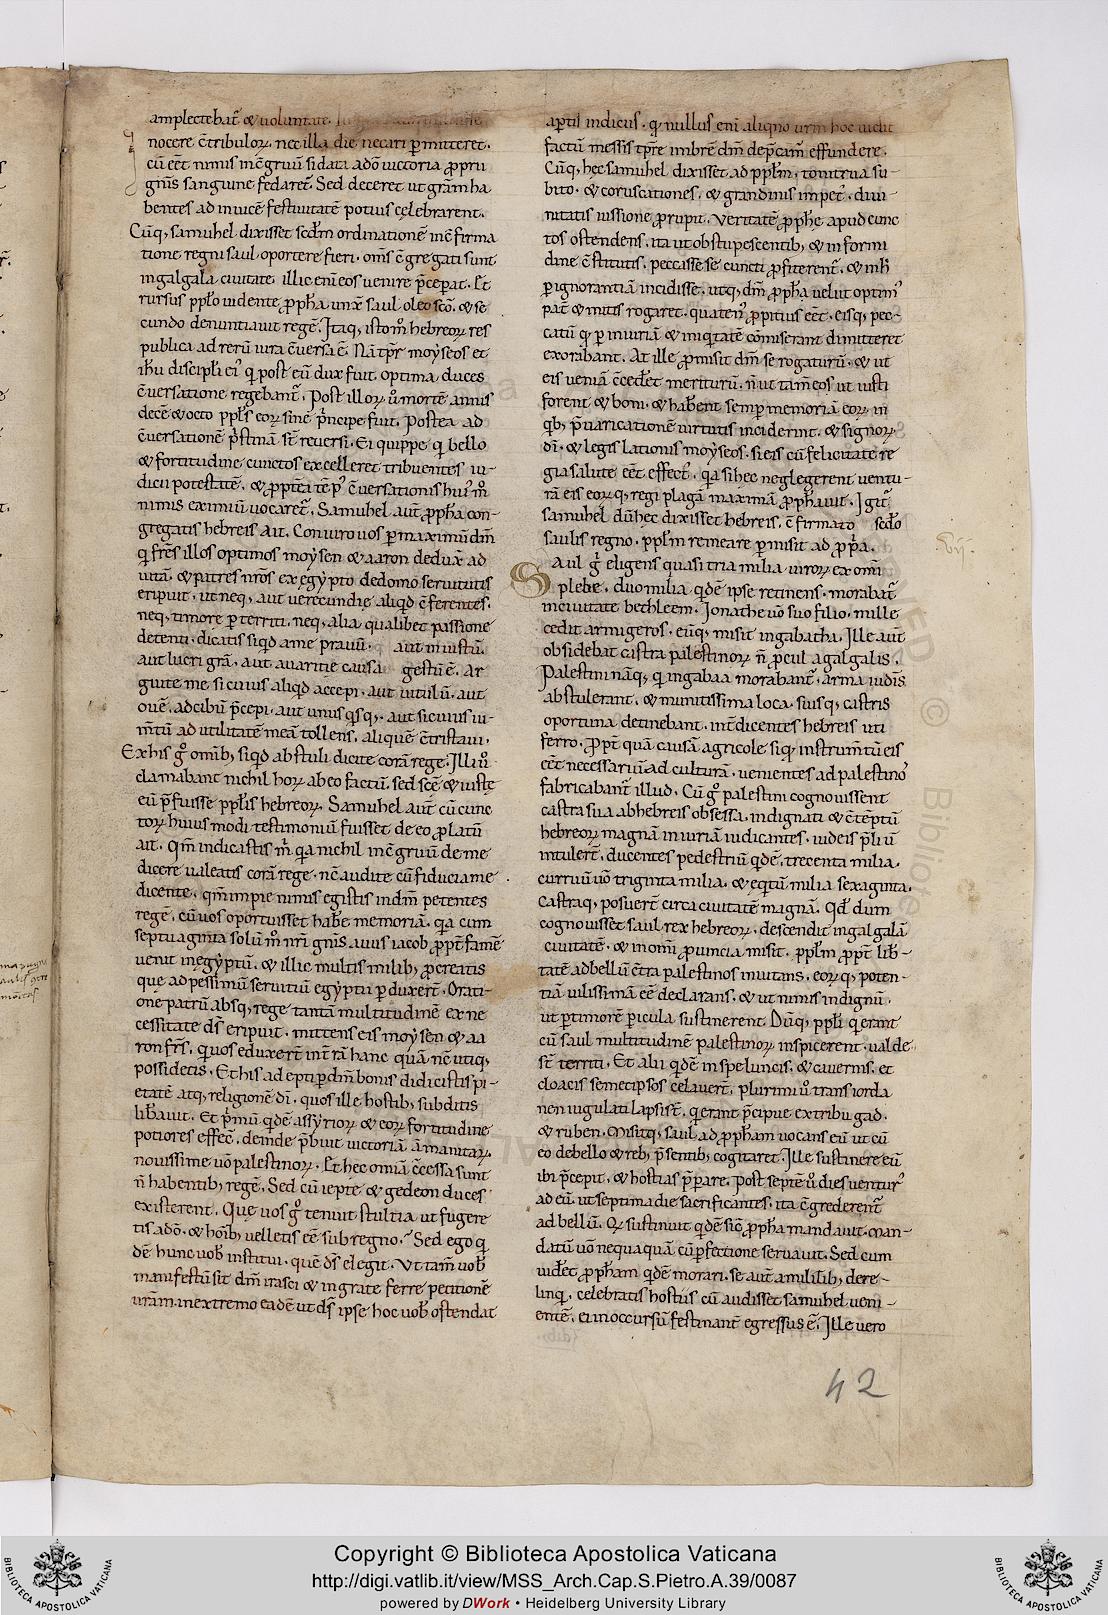 amplectebat̄ & voluntate.
nocere c̄tribuloꝝ. nec illa die necari ꝑmitteret.
cū eēt nimis inc̄gruū si data a dō victoria ꝓprii
gn̄is sanguine fedaret̄. Sed deceret ut grām ha
bentes ad invicē festivitatē potius cęlebrarent.
Cūq; samuhel dixisset scd̄m ordinationē inc̄firma
tione regni saul oportere fieri. om̄s c̄gregati sunt
in galgala civitate. illic enī eos venire p̄ceperat. Et
rursus pplo vidente ꝓph̄a unx̄ saul oleo scō. & se
cundo denuntiavit regē. Itaq; istom̊ hebreoꝝ res
publica ad rerū iura c̄versa ē. Nā tp̄r moẏseos et
ih̄u discipli eiꝰ qͥ post eū dux fuit. optima duces
c̄versatione regebant̄. Post illoꝝ ů mortē annis
decē & octo ppl̄s eoꝝ sine p̄ncipe fuit. Postea ad
c̄versationē p̄stinā st̄ reversi. Ei quippe qͥ bello
& fortitudine cunctos excelleret tribuentes iu-
dicii potestatē. & ꝓpt̄ea tēpꝰ c̄versationis huiꝰ m̊
nimis eximiū vocaret̄. Samuhel aut̄ ꝓph̄a con-
gregatis hebreis ait. Coniuro vos ꝑ maximū dm̄
qͥ frēs illos optimos moysen & aaron dedux̄ ad
vitā. & patres nr̄os ex ęgẏpto de domo servitutis
eripuit. ut neq; aut verecundię aliqͥd c̄ferentes.
neq; timore ꝑterriti. neq; alia qualibet passione
detenti. dicatis siqͥd a me pravū. aut iniustū.
aut lucri grā. aut avaritie causa gestū ē. Ar
guite me si cuius aliqͥd accepi. aut vitulū. aut
ovē. ad cibū p̄cepi. aut unus qͥsq;. aut si cuius iu-
m̄tū ad utilitatē meā tollens. aliquē c̄tristavi.
Ex his gͦ omib; siqͥd abstuli dicite corā rege. Illi ů
clamabant nichil hoꝝ ab eo factū. sed scē & iustę
eū p̄fuisse ppl̄is hebreoꝝ. Samuhel aut̄ cū cunc
toꝝ huius modi testimoniū fuisset de eo ꝓlatū
ait. Qm̄ indicastis m̄ qͥa nichil inc̄gruū de me
dicere valeatis corā rege. nc̄ audite cū fiducia me
dicente. qm̄ impie nimis egistis in dm̄ petentes
regē. cū vos oportuisset habēe memoriā. qͥa cum
septuaginta solū m̊ nr̄i gn̄is avus iacob ꝓpt̄ famē
venit in ęgẏptū. & illic multis milib; ꝓcreatis
que ad pessimū servitiū egẏptii ꝑduxer̄t. Orati-
one patrū absq; rege tantā multitudinē ex ne
cessitate ds̄ eripuit. mittens eis moẏsen & aa
ron frēs. qͥ vos eduxer̄t in t̄rā hanc quā nc̄ utiq;
possidetis. Et his adepti ꝑ dm̄ bonis didicistis pi-
etatē atq; religionē dī. quos ille hostib; subditis
lib̄avit. Et p̄mū qͥdē assẏrioꝝ & eoꝝ fortitudine
potiores effec̄. deinde p̄buit victoriā āmanitaꝝ.
novissime vō palestinoꝝ. Et hęc om̄ia c̄cessa sunt
n̄ habentib; regē. Sed cū iepte & gedeon duces
existerent. Quę vos gͦ tenuit stultia ut fugere
tis a dō. & hoīb; velletis eē sub regno. Sed ego qͥ
dē hunc vob̄ institui. quē ds̄ elegit. Ut tam̄ vob̄
manifestū sit dm̄ irasci & ingrate ferre petitionē
vr̄am. in extremo eadē ut ds̄ ipse hoc vob̄ ostendat
aꝑtis indiciis. qͥ nullus enī aliqͣno vr̄m hoc vidit
factū messis tp̄re imbrē dm̄ dep̄cam̄ effundere.
Cūq; hęc samuhel dixisset ad ppl̄m. tonitrua su-
bito. & coruscationes. & grandinis impet̄. divi
nitatis iussione ꝓrupit. Veritatē ꝓph̄e apud cunc
tos ostendens. ita ut obstupescentib; & in formi
dine c̄stitutis. peccasse se cuncti ꝓfiterent̄. & in h̄
ꝑ ignorantiā incidisse. utq; dm̄ ꝓph̄a velut optimꝰ
pat̄ & mitis rogaret. quatenꝰ ꝓpitius eēt. eisq; pec-
catū qͦ ꝑ iniuriā & iniqͥtatē cōmiserant dimitteret
exorabant. At ille ꝓmisit dm̄ se rogaturū. & ut
eis veniā c̄cedet̄ meriturū. n̄ ut tam̄ eos ut iusti
forent & boni. & habent semꝑ memoriā eoꝝ. in
qͥb; p̄varicationē virtutis inciderint. & signoꝝ
dī. & legis lationis moẏseos. si eis cū felicitate re
gia salute eēt effect̄. qͥa si hęc neglegerent ventu-
rā eis eorūq; regi plagā maximā ꝓph̄avit. Igit̄
samuhel dū hęc dixisset hebreis. c̄firmato scd̄o
saulis regno. ppl̄m remeare ꝑmisit ad ꝓp̄a.
VII.
Saul gͦ eligens quasi tria milia viroꝝ ex omī
plebe. duo milia qͥdē ipse retinens. morabat̄
in civitate bethleem. Ionathe vō suo filio. mille
cedit armigeros. eūq; misit in gabatha. Ille aut̄
obsidebat castra palestinoꝝ n̄ ꝓcul a galgalis.
Palestini nāq; qͥ in gabaa morabant̄. arma iudeis
abstulerant. & munitissima loca. suisq; castris
oportuna detinebant. int̄dicentes hebreis uti
ferro. ꝓpt̄ quā causā agricole siqͥ instrum̄tū eis
eēt necessariū ad culturā. venientes ad palestinoꝰ
fabricabant̄ illud. Cū gͦ palestini cognovissent
castra sua ab hebreis obsessa. indignati & c̄teptū
hebreoꝝ magnā iniuriā iudicantes. iudeis p̄liū
intuler̄t. ducentes pedestriū qͥdē. trecenta milia.
curruū vō triginta milia. & eqͥtū milia sexaginta.
Castraq; posuer̄t circa civitatē magnā. Qd̄ dum
cognovisset saul rex hebreoꝝ. descendit in galgalā
civitatē. & in omī ꝓvincia misit. ppl̄m ꝓpt̄ lib̄-
tatē ad bellū c̄tra palestinos invitans. eoꝝq; poten-
tiā vilissimā eē declarans. & ut nimis indignū.
ut ꝑtimorē ꝑicula sustinerent. Dūq; ppl̄i qͥ erant
cū saul multitudinē palestinoꝝ inspicerent. valde
st̄ territi. Et alii qͥdē in speluncis. & cavernis. et
cloacis semetipsos celaver̄t. plurimi ů trans iorda
nen iugulati lapsi st̄. qͥ erant p̄cipue ex tribu gad.
& ruben. Misitq; saul ad ꝓph̄am vocans eū ut cū
eo de bello & reb; p̄sentib; cogitaret. Ille sustinere eū
ibi p̄cepit. & hostias p̄ꝑare. Post septē ů dies venturꝰ
ad eū. ut septima die sacrificantes. ita c̄grederent̄
ad bellū. Qͥ sustinuit qͥdē sic̄ ꝓph̄a mandavit. Man-
datū vō nequaquā cū ꝑfectione servavit. Sed cum
videt̄ ꝓph̄am qͥdē morari. se aut̄ a militib; dere-
linqͥ. celebratis hostiis cū audisset samuhel veni-
entē. ei in occursū festinant̄ egressus ē. Ille vero
42
Copyright © Biblioteca Apostolica Vaticana
http://digi.vatlib.it/view/MSS_Arch.Cap.S.Pietro.A.39/0087
powered by DWork • Heidelberg University Library
BIBLIOTECA APOSTOLICA VATICANA
BIBLIOTECA APOSTOLICA VATICANA